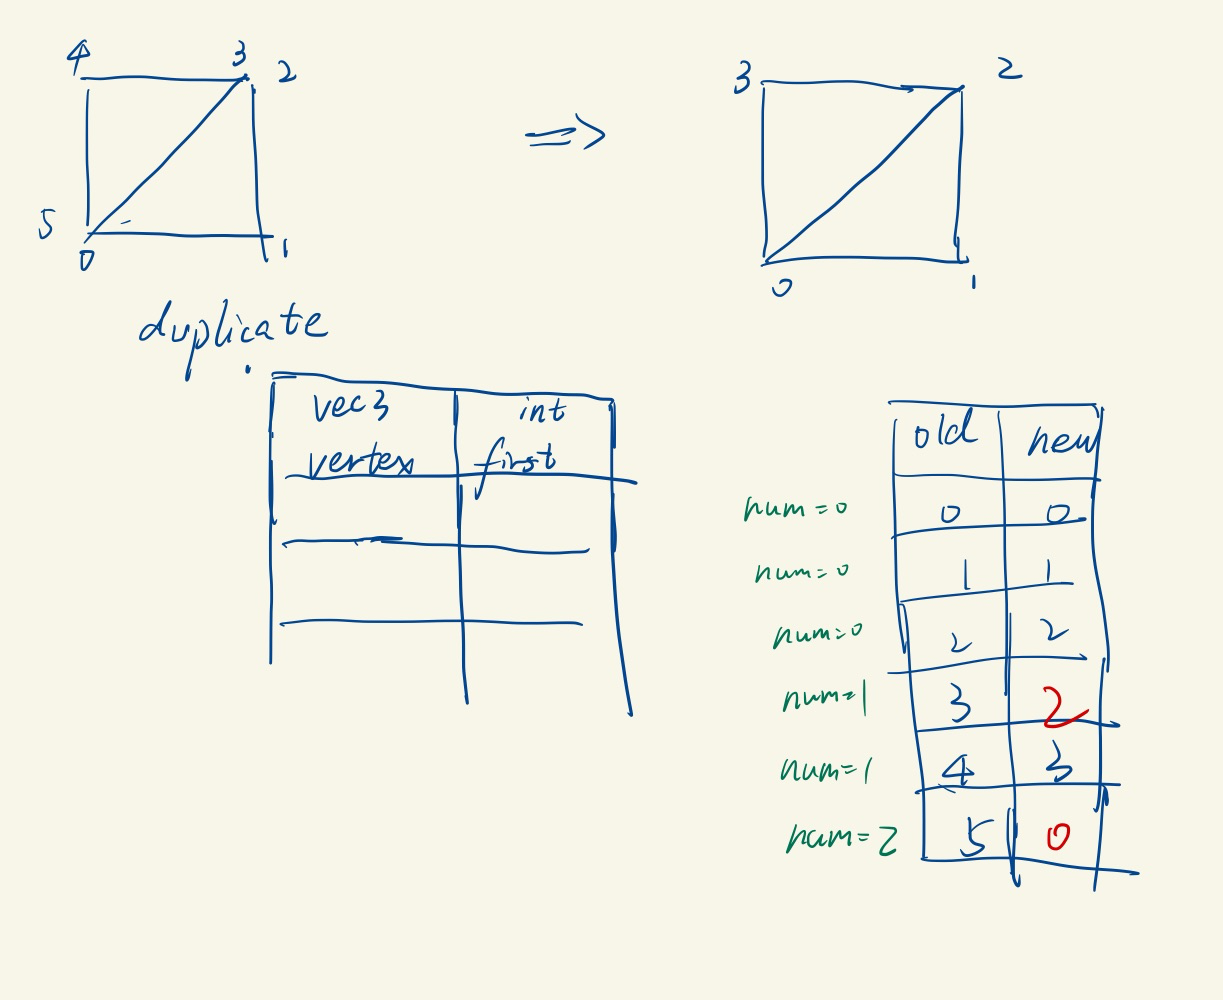 4 3 2
5 0 1
⇒
3 2
0 1
duplicate
vec3 int
vertex first
old new
num=0 0 0
num=0 1 1
num=0 2 2
num=1 3 2
num=1 4 3
num=2 5 0